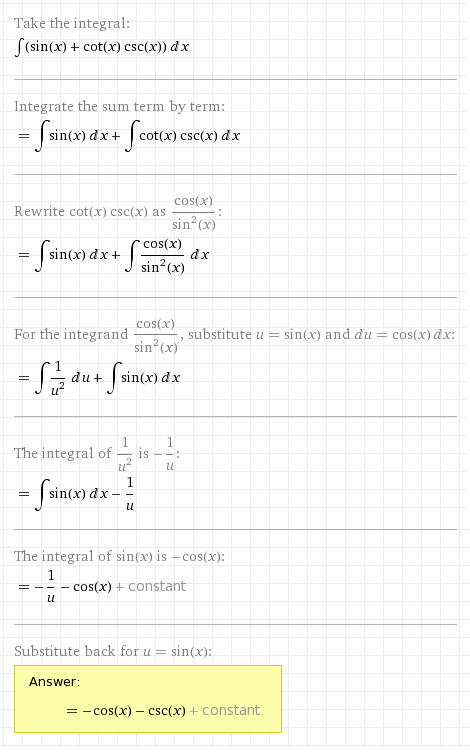 Take the integral:
∫(sin(x) + cot(x) csc(x)) dx
Integrate the sum term by term:
= ∫sin(x) dx + ∫cot(x) csc(x) dx
Rewrite cot(x) csc(x) as cos(x)/sin²(x):
= ∫sin(x) dx + ∫cos(x)/sin²(x) dx
For the integrand cos(x)/sin²(x), substitute u = sin(x) and du = cos(x) dx:
= ∫1/u² du + ∫sin(x) dx
The integral of 1/u² is −1/u:
= ∫sin(x) dx − 1/u
The integral of sin(x) is −cos(x):
= −1/u − cos(x) + constant
Substitute back for u = sin(x):
Answer:
= −cos(x) − csc(x) + constant